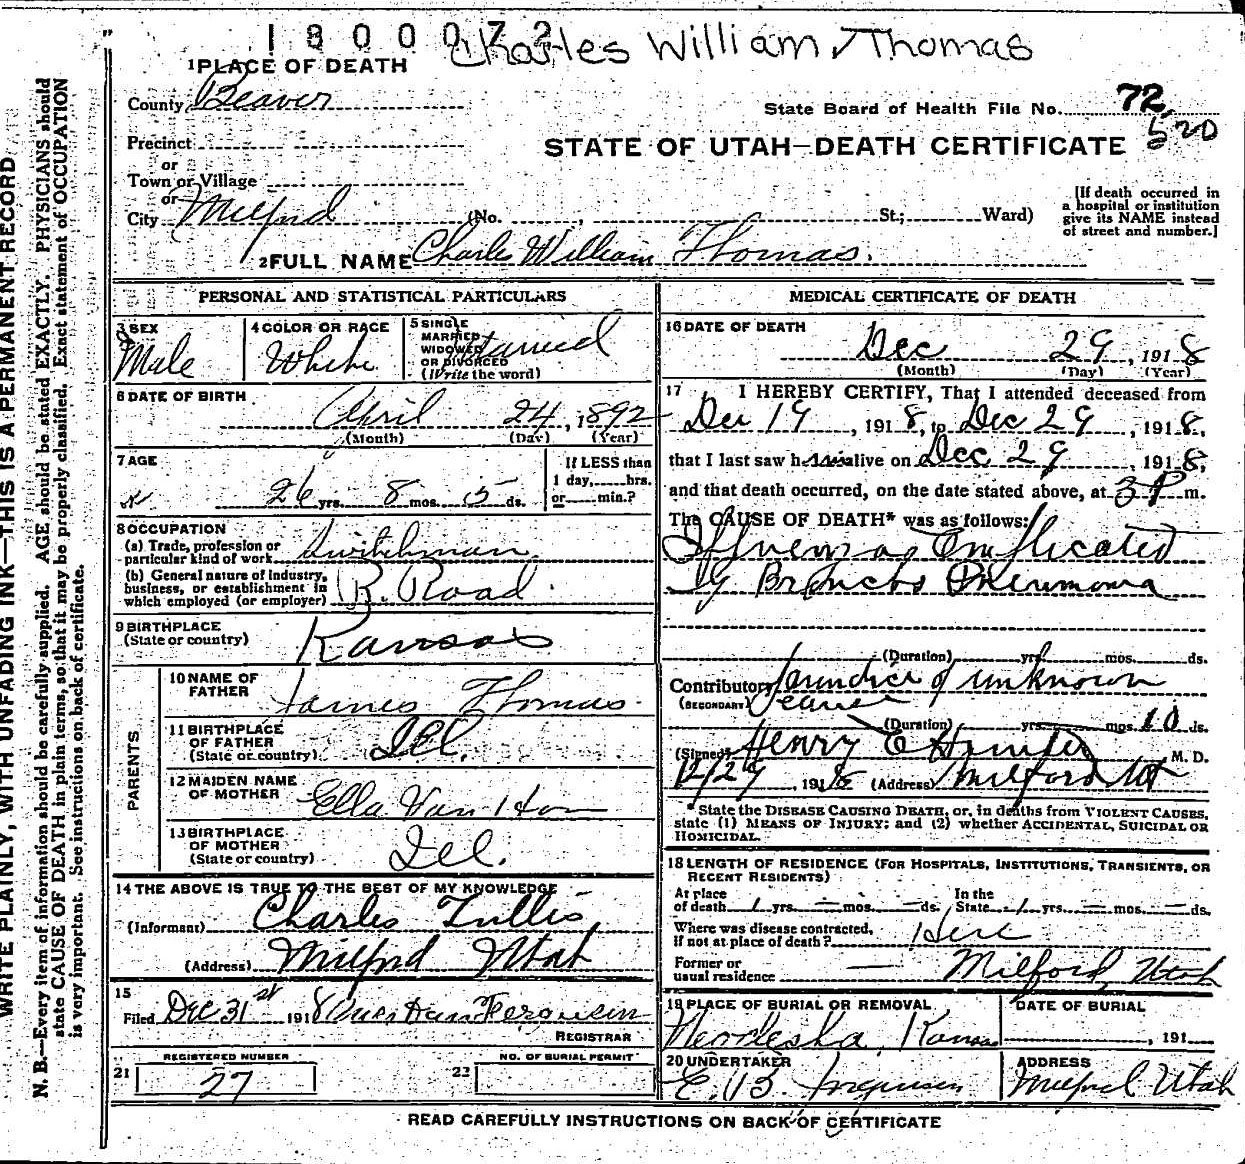 1800072
Charles William Thomas
1 PLACE OF DEATH
County Beaver
State Board of Health File No. 72
520
Precinct
or
Town or Village
or
City Milford (No. , St.; Ward)
STATE OF UTAH—DEATH CERTIFICATE
[If death occurred in
a hospital or institution
give its NAME instead
of street and number.]
2 FULL NAME Charles William Thomas.
PERSONAL AND STATISTICAL PARTICULARS
3 SEX
Male
4 COLOR OR RACE
White
5 SINGLE
MARRIED
WIDOWED
OR DIVORCED
(Write the word)
Married
6 DATE OF BIRTH
April 24, 1892
(Month) (Day) (Year)
7 AGE
26 yrs. 8 mos. 5 ds.
If LESS than
1 day, hrs.
or min.?
8 OCCUPATION
(a) Trade, profession or
particular kind of work Switchman
(b) General nature of industry,
business, or establishment in
which employed (or employer) R. Road
9 BIRTHPLACE
(State or country) Kansas
PARENTS
10 NAME OF
FATHER James Thomas
11 BIRTHPLACE
OF FATHER
(State or country) Ill.
12 MAIDEN NAME
OF MOTHER Ella Van Horn
13 BIRTHPLACE
OF MOTHER
(State or country) Ill.
14 THE ABOVE IS TRUE TO THE BEST OF MY KNOWLEDGE
(Informant) Charles Tullis
(Address) Milford Utah
15
Filed Dec 31st 1918
REGISTRAR
REGISTERED NUMBER
21 27
NO. OF BURIAL PERMIT
22
MEDICAL CERTIFICATE OF DEATH
16 DATE OF DEATH
Dec 29, 1918
(Month) (Day) (Year)
17 I HEREBY CERTIFY, That I attended deceased from
Dec 19, 1918, to Dec 29, 1918,
that I last saw him alive on Dec 29, 1918,
and that death occurred, on the date stated above, at 3 P m.
The CAUSE OF DEATH* was as follows:
Influenza Complicated
by Broncho Pneumonia
(Duration) yrs. mos. ds.
Contributory Jaundice of unknown
(SECONDARY)
(Duration) yrs. mos. 10 ds.
(Signed) Henry E M. D.
12/29, 1918 (Address) Milford Ut
* State the DISEASE CAUSING DEATH, or, in deaths from VIOLENT CAUSES,
state (1) MEANS OF INJURY; and (2) whether ACCIDENTAL, SUICIDAL OR
HOMICIDAL.
18 LENGTH OF RESIDENCE (FOR HOSPITALS, INSTITUTIONS, TRANSIENTS, OR
RECENT RESIDENTS)
At place
of death 1 yrs. — mos. — ds.
In the
State 1 yrs. — mos. — ds.
Where was disease contracted,
If not at place of death? Here
Former or
usual residence — Milford, Utah
19 PLACE OF BURIAL OR REMOVAL
Neodesha, Kansas
DATE OF BURIAL
, 191
20 UNDERTAKER
E. B. Jorgensen
ADDRESS
Milford Utah
READ CAREFULLY INSTRUCTIONS ON BACK OF CERTIFICATE
WRITE PLAINLY, WITH UNFADING INK—THIS IS A PERMANENT RECORD
N. B.—Every item of information should be carefully supplied. AGE should be stated EXACTLY. PHYSICIANS should
state CAUSE OF DEATH in plain terms, so that it may be properly classified. Exact statement of OCCUPATION
is very important. See instructions on back of certificate.